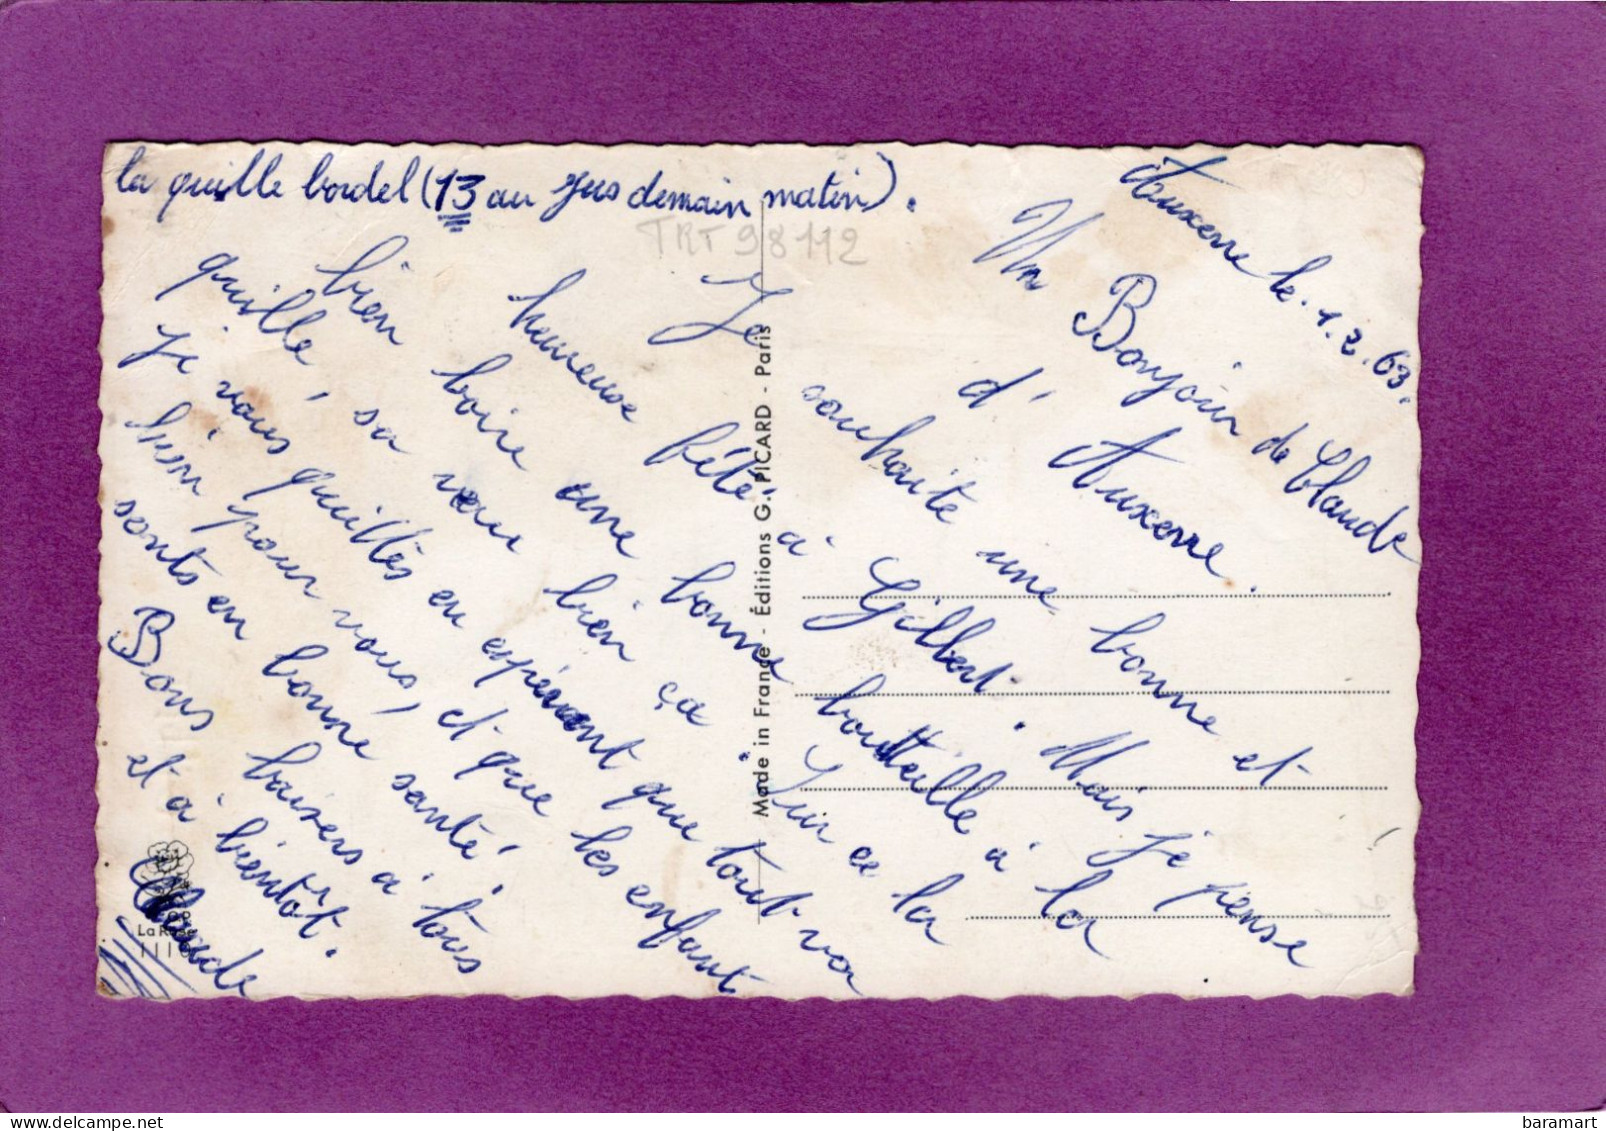 la quille bordel (13 au jus demain matin).
TRT 98112
Auxerre le. 1.2.63.
Un Bonjour de Claude
d'Auxerre.
Je souhaite une bonne et
heureuse fête à Gilbert. Mais je pense
bien boire une bonne boutteille à la
quille, sa veux bien ça. Sur ce la
je vais quittés en espérent que tout va
bien pour vous, et que les enfant
sonts en bonne santé.
Bons baisers à tous
et à bientôt.
Claude
Made in France - Éditions G. PICARD - Paris
La Rose